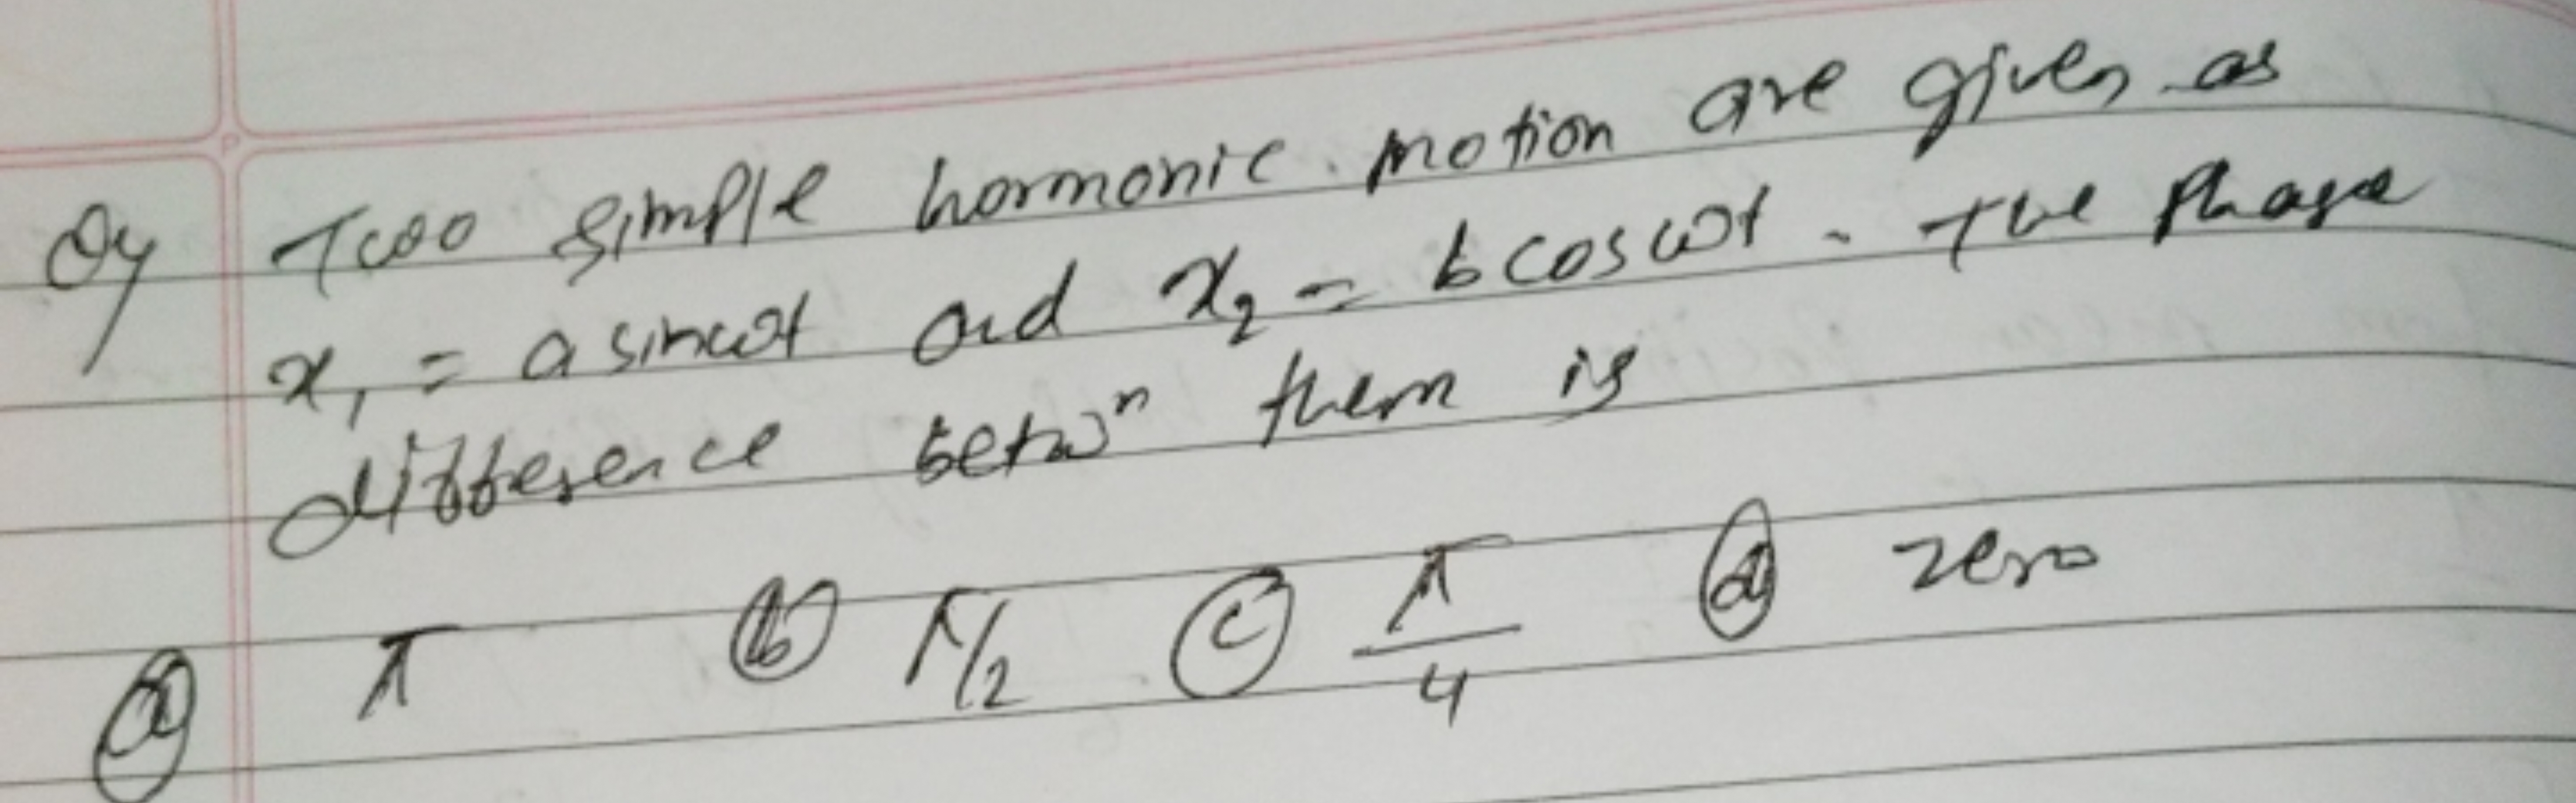 Qy Two simple hormonic motion are given as
x₁ = a sinωt and x₂ = b cosωt. The Phase
difference betwⁿ them is
(a) π (b) π/2 (c) π/4 (d) zero